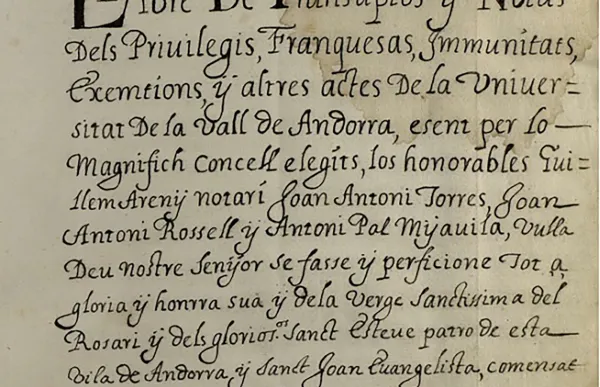 Llibre De Transuptos ÿ Notas
Dels Priuilegis, Franquesas, Jmmunitats,
Exemtions, ÿ altres actes De la Vniuer=
sitat De la Vall de Andorra, esent per lo
Magnifich Concell elegits, los honorables Gui=
llem Areny notari Joan Antoni Torres, Joan
Antoni Rossell ÿ Antoni Pal Myauila, Vulla
Deu nostre Senÿor se fasse ÿ perficione Tot a
gloria ÿ honrra sua ÿ dela Verge Sanctissima del
Rosari ÿ dels glorios.os Sanct Esteue patro de esta
Vila de Andorra, ÿ Sanct Joan Euangelista, comensat